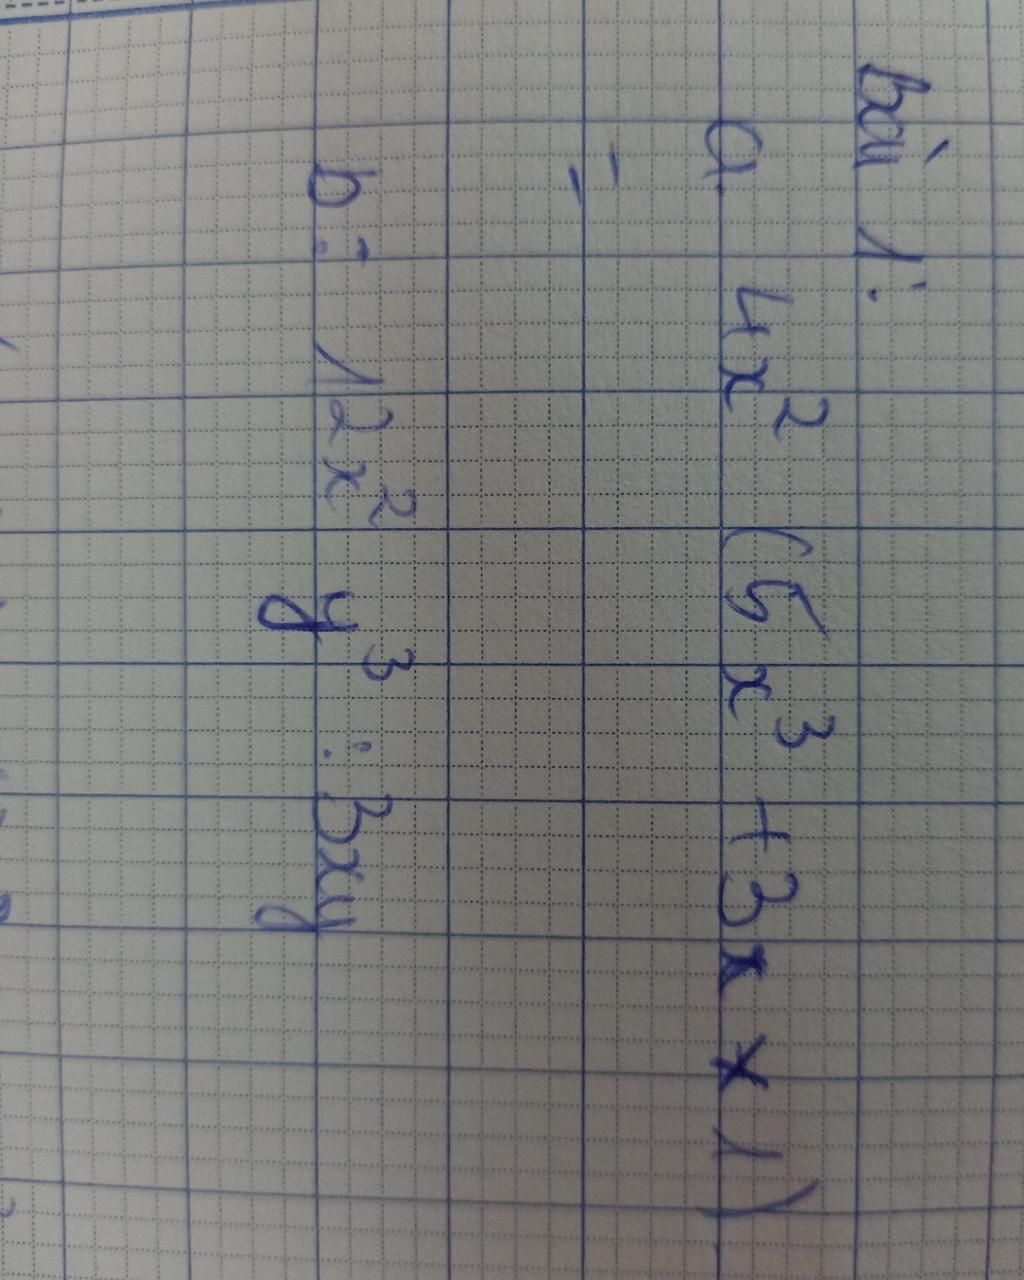 bài 1:
a. 4x² (5x³ + 3x x 1)
=
b: 12x² y³ : 3xy